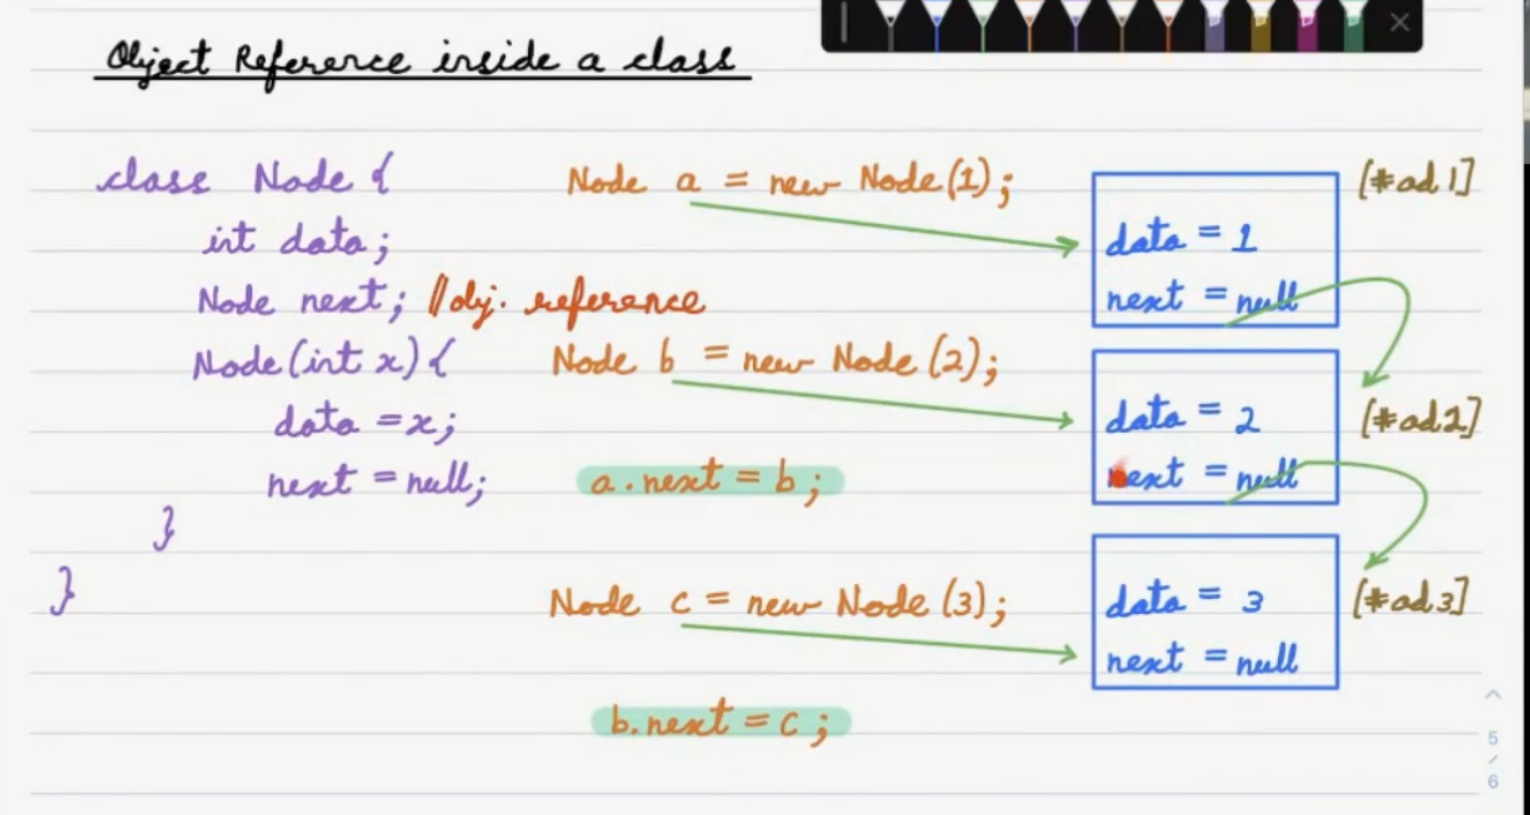 Object Reference inside a class
class Node {
int data;
Node next; //obj. reference
Node(int x) {
data = x;
next = null;
}
}
Node a = new Node(1);
Node b = new Node(2);
a.next = b;
Node c = new Node(3);
b.next = c;
[#ad1]
data = 1
next = null
[#ad2]
data = 2
next = null
[#ad3]
data = 3
next = null
5
/
6